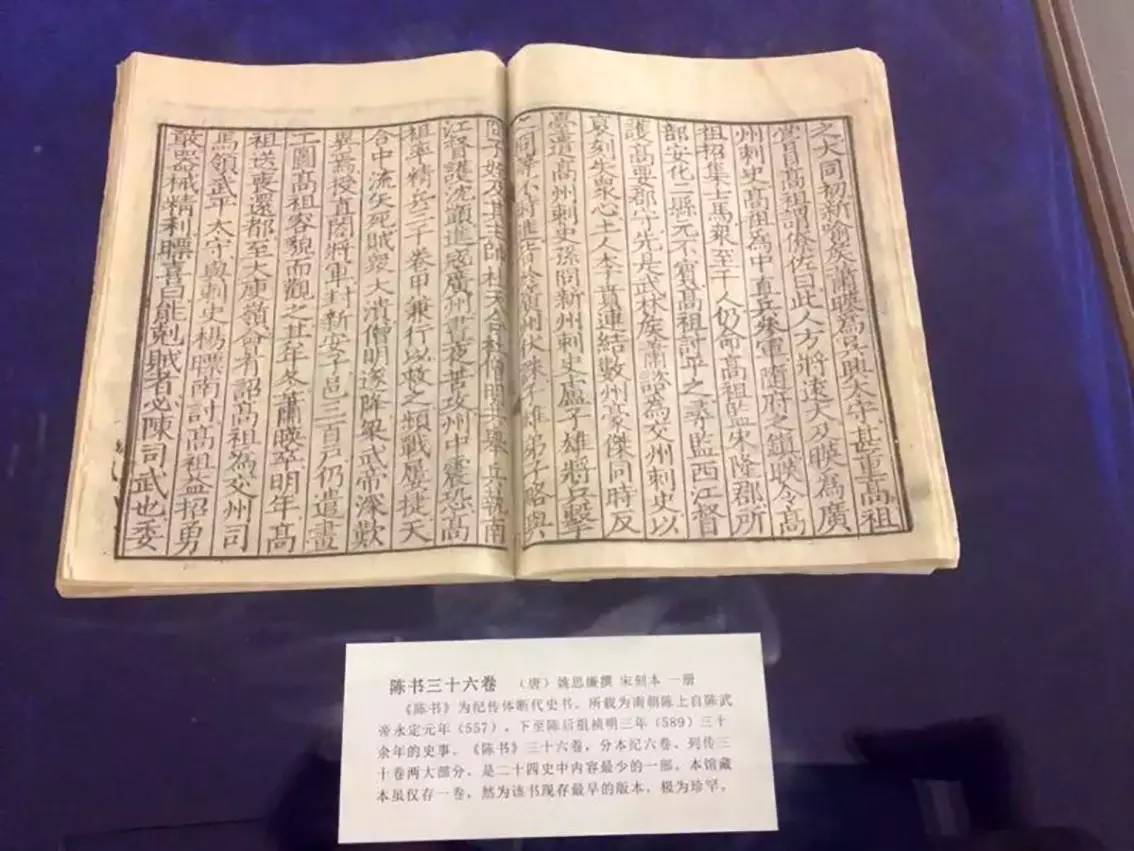 之大同初新喻侯蕭暎為吳興太守甚重高祖
嘗目高祖謂僚佐曰此人方將遠大及暎為廣
州刺史高祖為中直兵參軍隨府之鎮暎令高
祖招集士馬衆至千人仍命高祖監宋隆郡所
部安化二縣元不賓高祖討平之尋監西江督
護高要郡守先是武林侯蕭諮為交州刺史以
裒刻失衆心土人李賁連結數州豪傑同時反
臺遣高州刺史孫冏新州刺史盧子雄將兵擊
冏等不時進皆於廣州伏誅子雄弟子略與
冏子姪及其主帥杜天合杜僧明共舉兵執南
江督護沈顗進寇廣州晝夜苦攻州中震恐高
祖率精兵三千卷甲兼行以救之頻戰屢捷天
合中流矢死賊衆大潰僧明遂降梁武帝深歎
異焉授直閤將軍封新安子邑三百戶仍遣畫
工圖高祖容貌而觀之其年冬蕭暎卒明年高
祖送喪還都至大庾嶺會有詔高祖為交州司
馬領武平太守與刺史楊瞟南討高祖益招勇
敢器械精利瞟喜曰能剋賊者必陳司武也委
陈书三十六卷 （唐）姚思廉撰 宋刻本 一册
《陈书》为纪传体断代史书。所载为南朝陈上自陈武
帝永定元年（557），下至陈后祖祯明三年（589）三十
余年的史事。《陈书》三十六卷，分本纪六卷、列传三
十卷两大部分，是二十四史中内容最少的一部。本馆藏
本虽仅存一卷，然为该书现存最早的版本，极为珍罕。